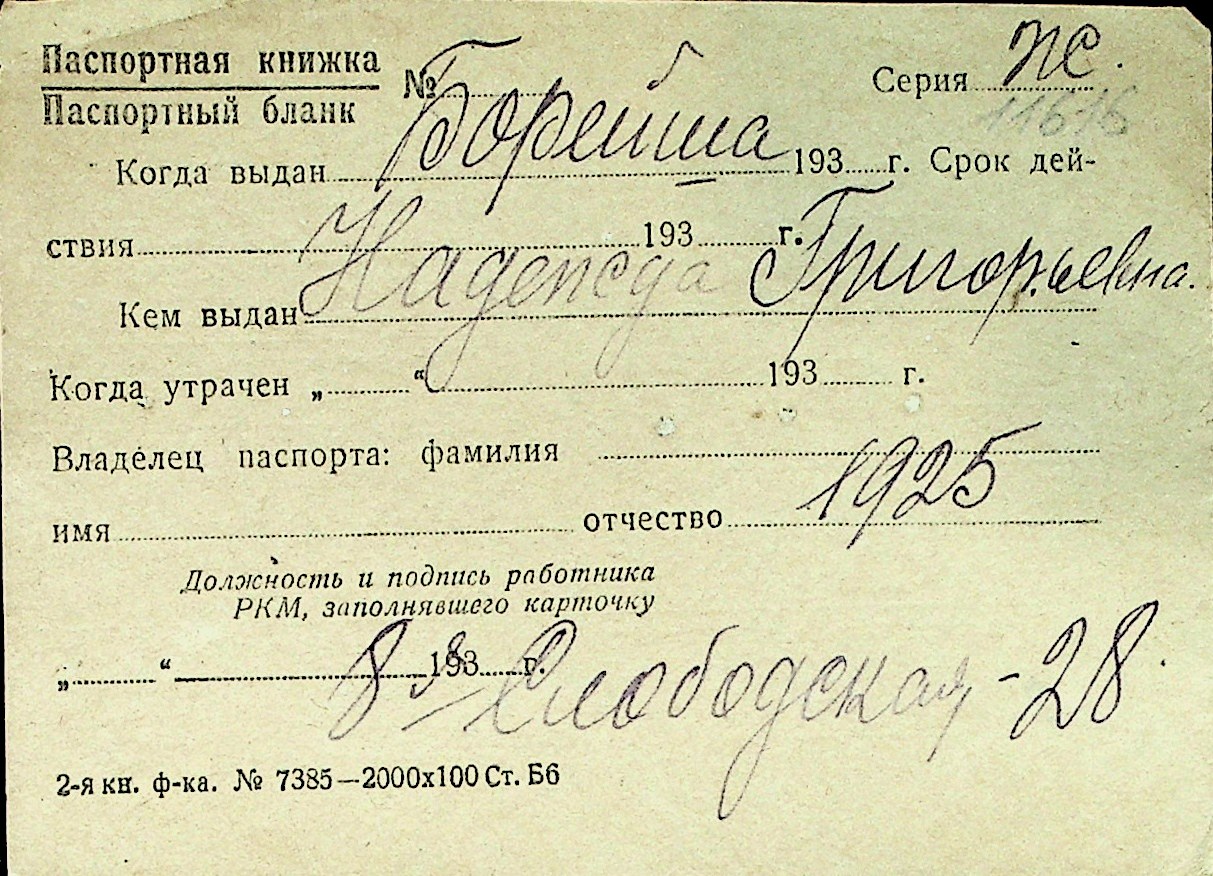 Паспортная книжка № Серия Ж.
Паспортный бланк 11616
Борейша
Когда выдан 193 г. Срок дей-
ствия 193 г.
Надежда Григорьевна.
Кем выдан
Когда утрачен „ “ 193 г.
Владелец паспорта: фамилия
1925
имя отчество
Должность и подпись работника
РКМ, заполнявшего карточку
„ “ 193 г.
8ая Слободская - 28.
2-я кн. ф-ка. № 7385—2000х100 Ст. Б6